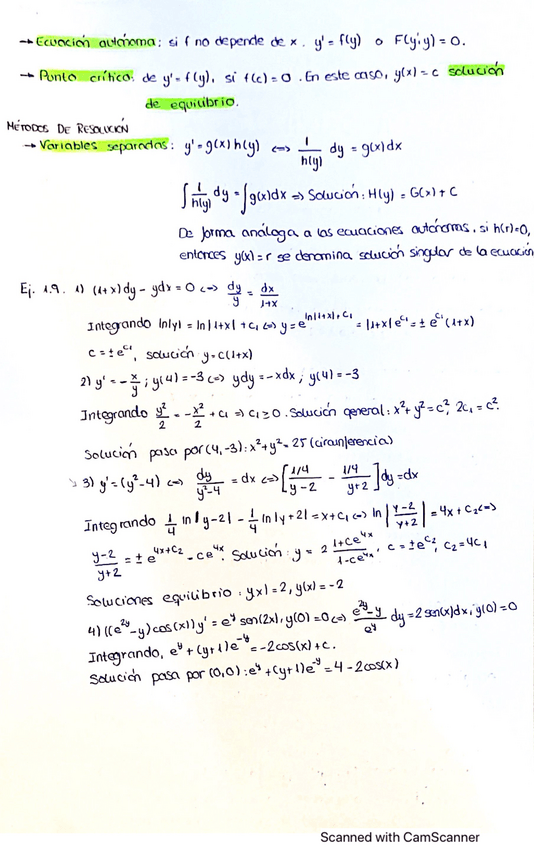 → Ecuación autónoma: si f no depende de x. y' = f(y) o F(y',y) = 0.
→ Punto crítico: de y' = f(y), si f(c) = 0. En este caso, y(x) = c solución
de equilibrio.
MÉTODOS DE RESOLUCIÓN
→ Variables separadas: y' = g(x)h(y) ⇔ 1/h(y) dy = g(x)dx
∫ 1/h(y) dy = ∫ g(x)dx ⇒ Solución: H(y) = G(x) + C
De forma análoga a las ecuaciones autónomas, si h(r)=0,
entonces y(x) = r se denomina solución singular de la ecuación
Ej. 1.9. 1) (1+x)dy - ydx = 0 ⇔ dy/y = dx/1+x
Integrando ln|y| = ln|1+x| + C₁ ⇔ y = e^(ln|1+x|+C₁) = |1+x|e^C₁ = ± e^C₁ (1+x)
C = ±e^C₁, solución y = C(1+x)
2) y' = -x/y; y(4) = -3 ⇔ ydy = -xdx; y(4) = -3
Integrando y²/2 = -x²/2 + C₁ ⇒ C₁ ≥ 0. Solución general: x² + y² = C², 2C₁ = C².
Solución pasa por (4,-3): x² + y² = 25 (circunferencia)
3) y' = (y²-4) ⇔ dy/y²-4 = dx ⇔ [1/4/y-2 - 1/4/y+2] dy = dx
Integrando 1/4 ln|y-2| - 1/4 ln|y+2| = x + C₁ ⇔ ln|y-2/y+2| = 4x + C₂ ⇔
y-2/y+2 = ± e^(4x+C₂) - ce^4x. Solución: y = 2 1+ce^4x/1-ce^4x, c = ±e^C₂, C₂ = 4C₁
Soluciones equilibrio: yx) = 2, y(x) = -2
4) ((e^2y - y)cos(x)) y' = e^y sen(2x), y(0) = 0 ⇔ e^2y - y/e^y dy = 2 sen(x)dx, y(0) = 0
Integrando, e^y + (y+1)e^-y = -2cos(x) + c.
Solución pasa por (0,0): e^y + (y+1)e^-y = 4 - 2cos(x)
Scanned with CamScanner